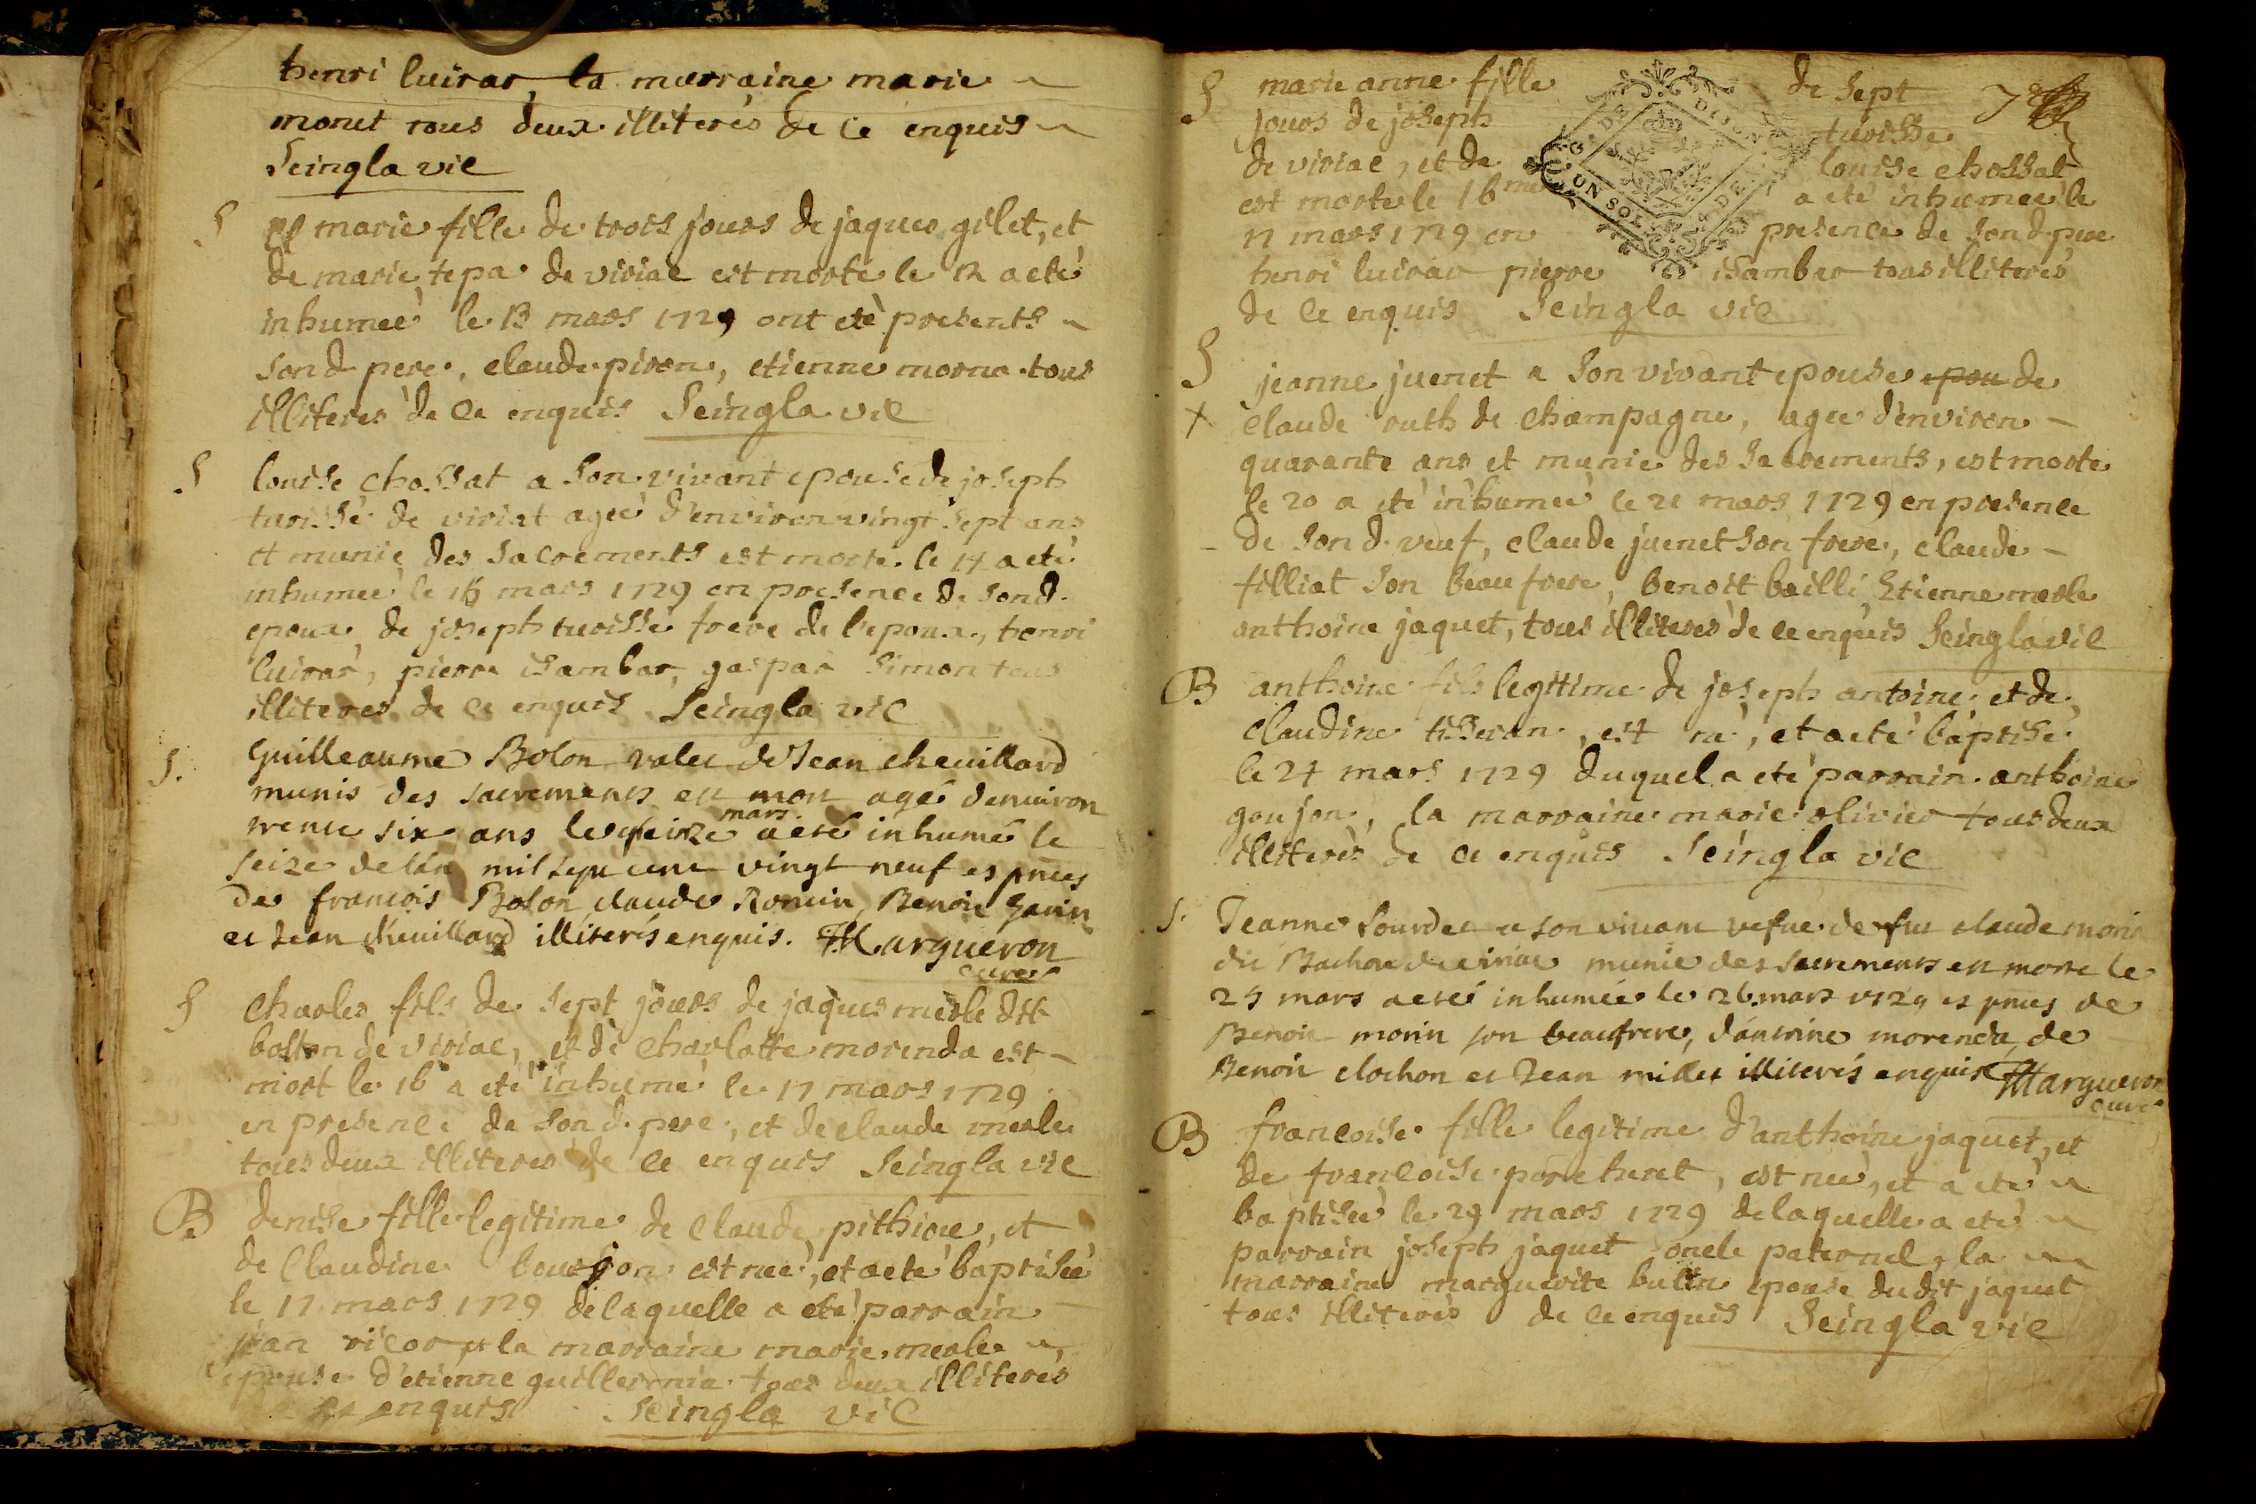 henri luirar, la marraine marie
monet tous deux illiterés de ce enquis
Seingla vic
S
marie fille de trois jours de jaques gilet, et
de marie tepa de viriac est morte le 12 a eté
inhumeè le 13 mars 1729 ont eté presents
son d. pere, claude piron, etienne morna tous
illiteres de ce enquis Seingla vic
S
louise chossat a son vivant epouse de joseph
turissé de viriat ageé d'environ vingt sept ans
et munie des sacrements est morte le 14 a eté
inhumeé le 15 mars 1729 en presence de son d.
epoux de joseph turissé frere de l'epoux, henri
luirar, pierre isambar, gaspar simon tous
illiteres de ce enquis Seingla vic
S.
Guilleaume Bolon valet de Jean cheuillard
munis des sacrements est mort agé denuiron
trente six ans le quinze mars a eté inhumé le
seize de l'an mil sept cent vingt neuf es pnces
de francois Bolon claude Romin, Benoit Garin
et Jean cheuillard illiterés enquis. Margueron
curé
S
Charles fils de sept jours de jaques merle dit
bolton de viriac, et de charlotte morenda est
mort le 16 a eté inhumé le 17 mars 1729
en presence de son d. pere, et de claude merle
tous deux illiteres de ce enquis Seingla vic
B
denise fille legitime de claude pithioe, et
de Claudine bourjon est neé, et a eté baptiseé
le 17 mars 1729 de laquelle a eté parrain
jean ricor et la marraine marie merle
epouse d'etienne guillermin tous deux illiterés
de ce enquis Seingla vic
S
marie anne fille de sept
jours de joseph turissé
de viriac, et de louise chossat
est morte le 16me a eté inhumeé le
17 mars 1729 en presence de son d. pere
henri luirar pierre isambar tous illiterés
de ce enquis Seingla vic
G. DE DIJON
UN SOL
S
jeanne juenet a son vivant epouse epou de
X claude ruth de champagne, ageé d'environ
quarante ans et munie des sacrements, est morte
le 20 a eté inhumeé le 21 mars 1729 en presence
de son d. veuf, claude juenet son frere, claude
filliat son beau frere, benoit bailli Etienne merle
anthoine jaquet, tous illiteres de ce enquis Seingla vic
B
anthoine fils legitime de joseph antoine et de
claudine tisseran, est né, et a eté baptisé
le 24 mars 1729 duquel a eté parrain anthoine
goujon, la marraine marie olivier tous deux
illiterés de ce enquis Seingla vic
S.
Jeanne Sourdet a son viuant vefue de feu claude morin
dit Bachon de viriac munie des sacrements est morte le
25 mars a eté inhumée le 26 mars 1729 es pnces de
Benoit morin son beaufrere, d'antoine morenda, de
Benoit clochon et Jean millet illiterés enquis Margueron
curé
B
francoise fille legitime d'anthoine jaquet, et
de francoise porcheret, est neé, et a eté
baptiseé le 29 mars 1729 de laquelle a eté
parrain joseph jaquet oncle paternel, la
marraine marguerite butin epouse dudit jaquet
tous illiterés de ce enquis Seingla vic